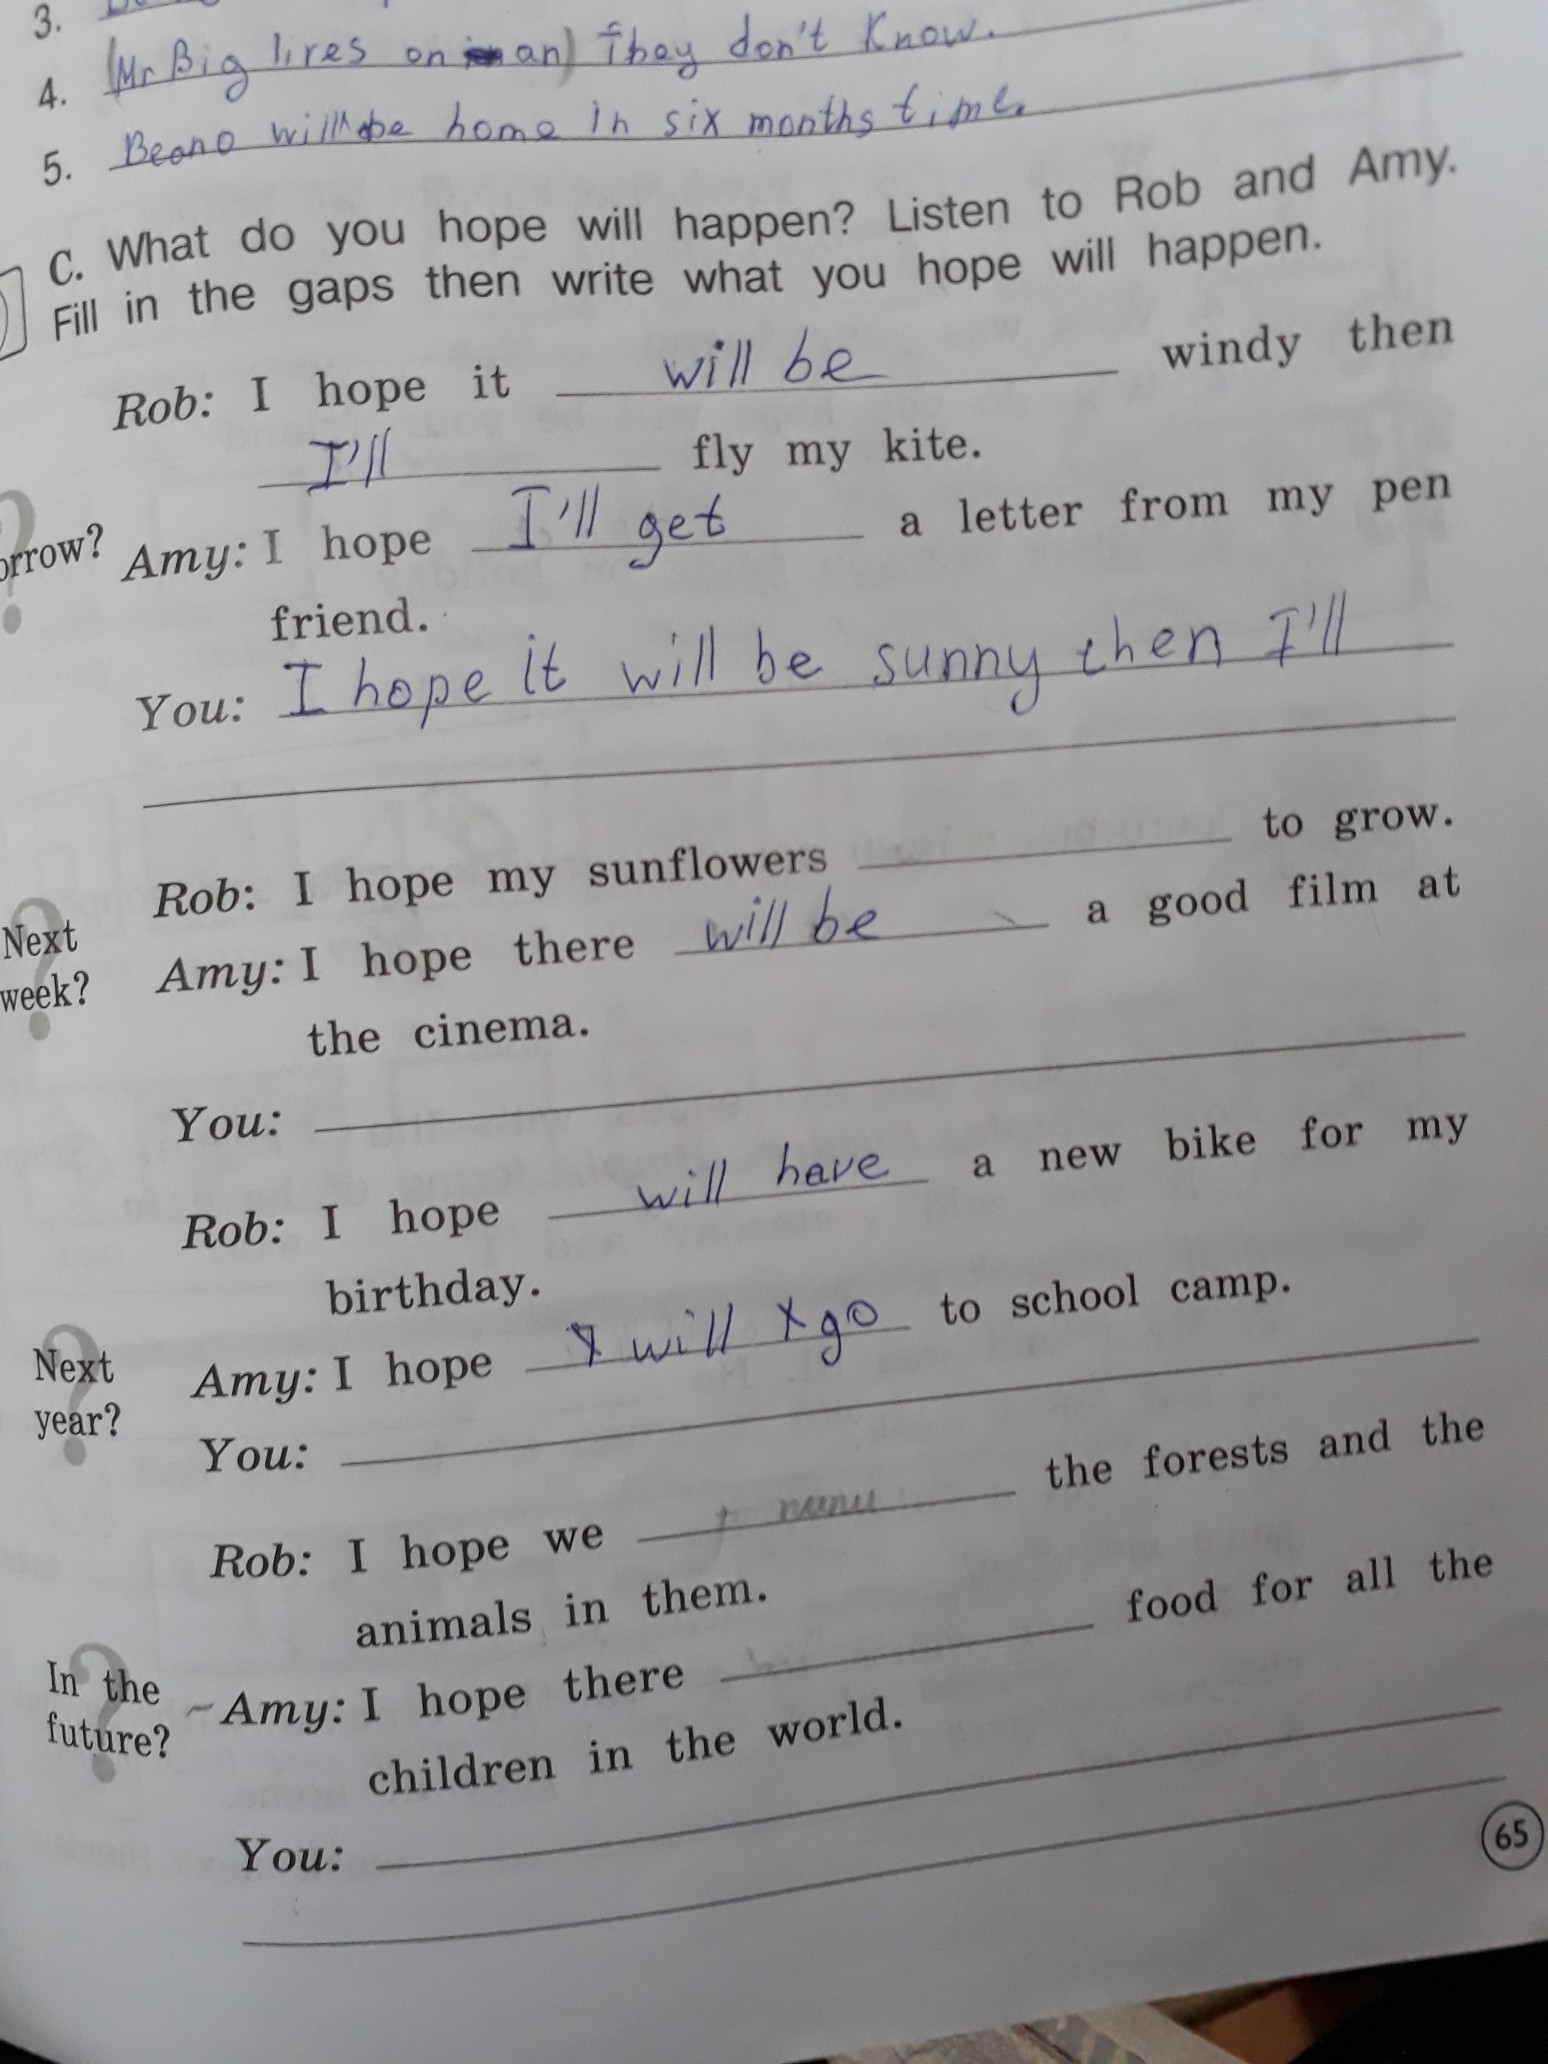 3.
4. (Mr Big lives on an) They don't know.
5. Beano will be home in six months time.
C. What do you hope will happen? Listen to Rob and Amy.
Fill in the gaps then write what you hope will happen.
Rob: I hope it will be windy then
I'll fly my kite.
orrow? Amy: I hope I'll get a letter from my pen
friend.
You: I hope it will be sunny then I'll
Rob: I hope my sunflowers to grow.
Next
week?
Amy: I hope there will be a good film at
the cinema.
You:
Rob: I hope will have a new bike for my
birthday.
Next
year?
Amy: I hope I will go to school camp.
You:
Rob: I hope we the forests and the
animals in them.
In the
future?
Amy: I hope there food for all the
children in the world.
You:
65